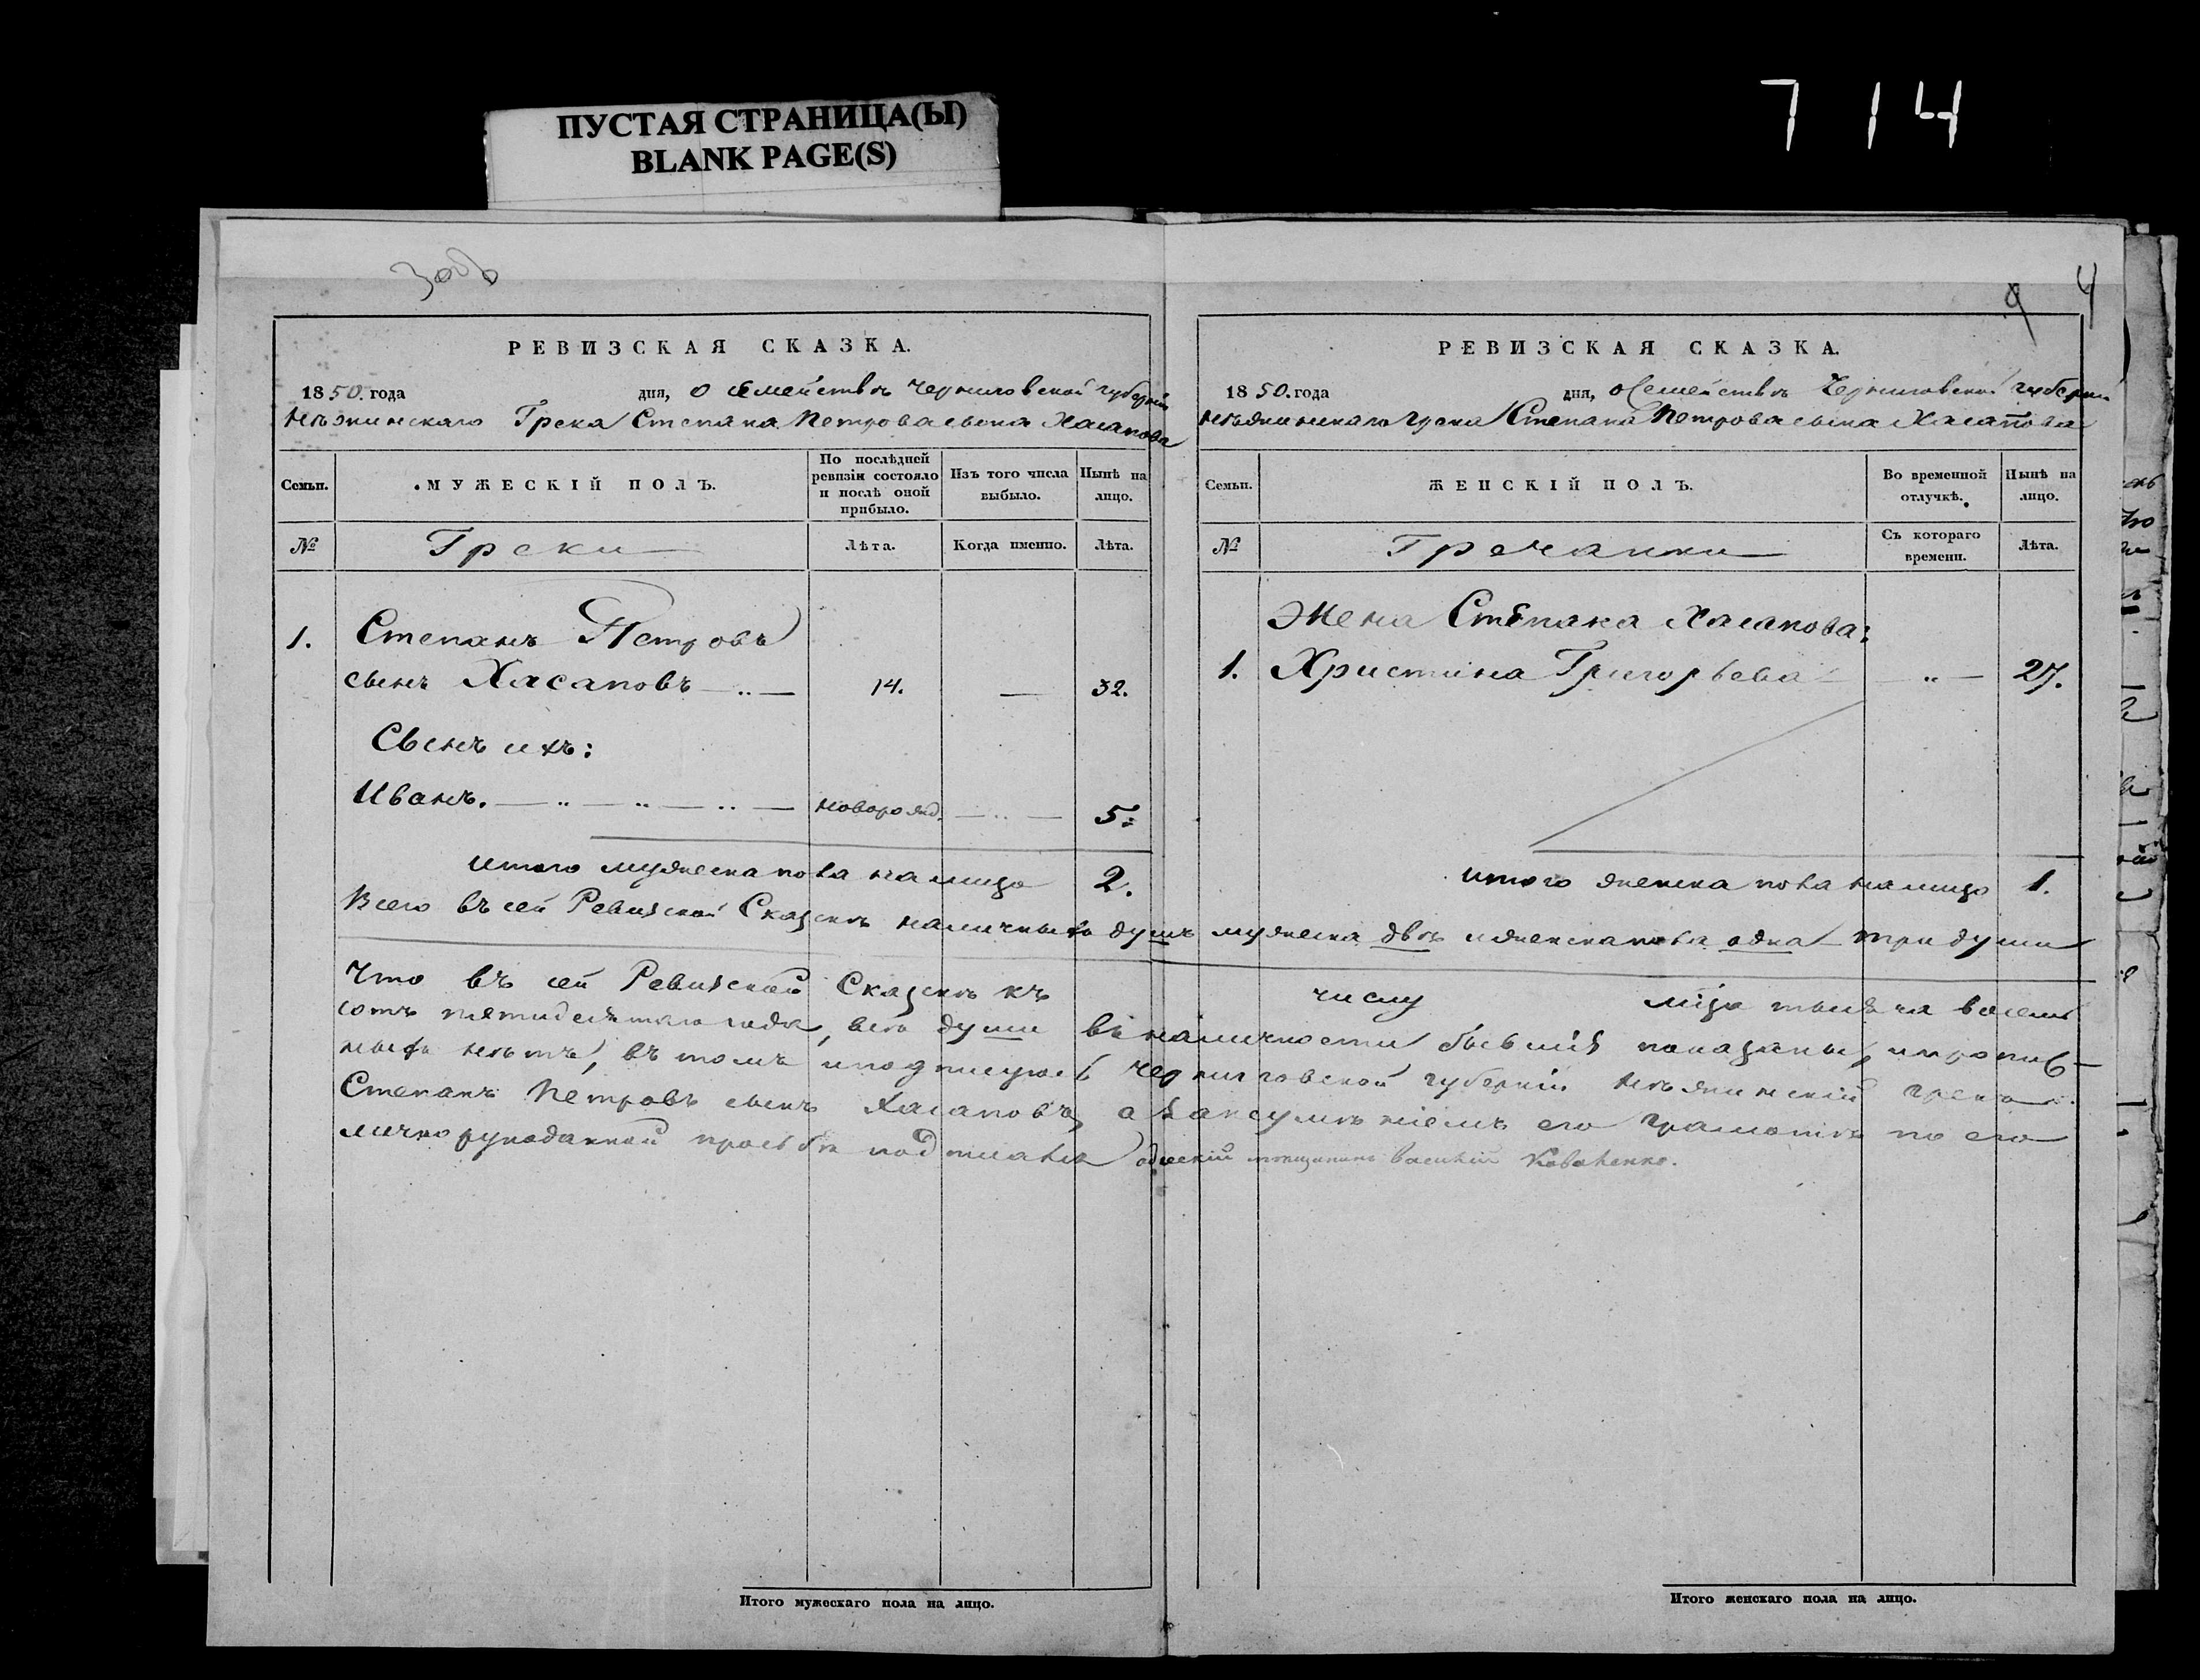 ПУСТАЯ СТРАНИЦА(Ы)
BLANK PAGE(S)
714
3 об
4
РЕВИЗСКАЯ СКАЗКА.
1850. года дня, о семействѣ Черниговской губерніи
Нѣжинскаго Грека Степана Петрова сына Хасапова
Семьи.
МУЖЕСКІЙ ПОЛЪ.
По послѣдней ревизіи состояло и послѣ оной прибыло.
Изъ того числа выбыло.
Нынѣ на лицо.
№
Греки
Лѣта.
Когда именно.
Лѣта.
1. Степанъ Петровъ
сынъ Хасаповъ 14. — 32.
Сынъ ихъ:
Иванъ. новорожд. 5.
Итого мужеска пола на лицо 2.
РЕВИЗСКАЯ СКАЗКА.
1850. года дня, о Семействѣ Черниговской губерніи
Нѣжинскаго Грека Степана Петрова сына Хасапова
Семьи.
ЖЕНСКІЙ ПОЛЪ.
Во временной отлучкѣ.
Нынѣ на лицо.
№
Гречанки
Съ котораго времени.
Лѣта.
Жена Степана Хасапова:
1. Христина Григорьева 27.
Итого женска пола на лицо 1.
Всего въ сей Ревизской Сказкѣ наличныхъ душъ мужеска двѣ и женска пола одна три души
Что въ сей Ревизской Сказкѣ къ числу тысяча восемь
сотъ пятидесятаго года, всѣ души въ наличности бывшія показаны, и прописныхъ нѣтъ, въ томъ и подписуюсь Черниговской губерніи Нѣжинскій грекъ
Степанъ Петровъ сынъ Хасаповъ, а его грамотѣ по его
лично рукоданной просьбѣ подписалъ одесскій мѣщанинъ Василій Коваленко.
Итого мужескаго пола на лицо.
Итого женскаго пола на лицо.